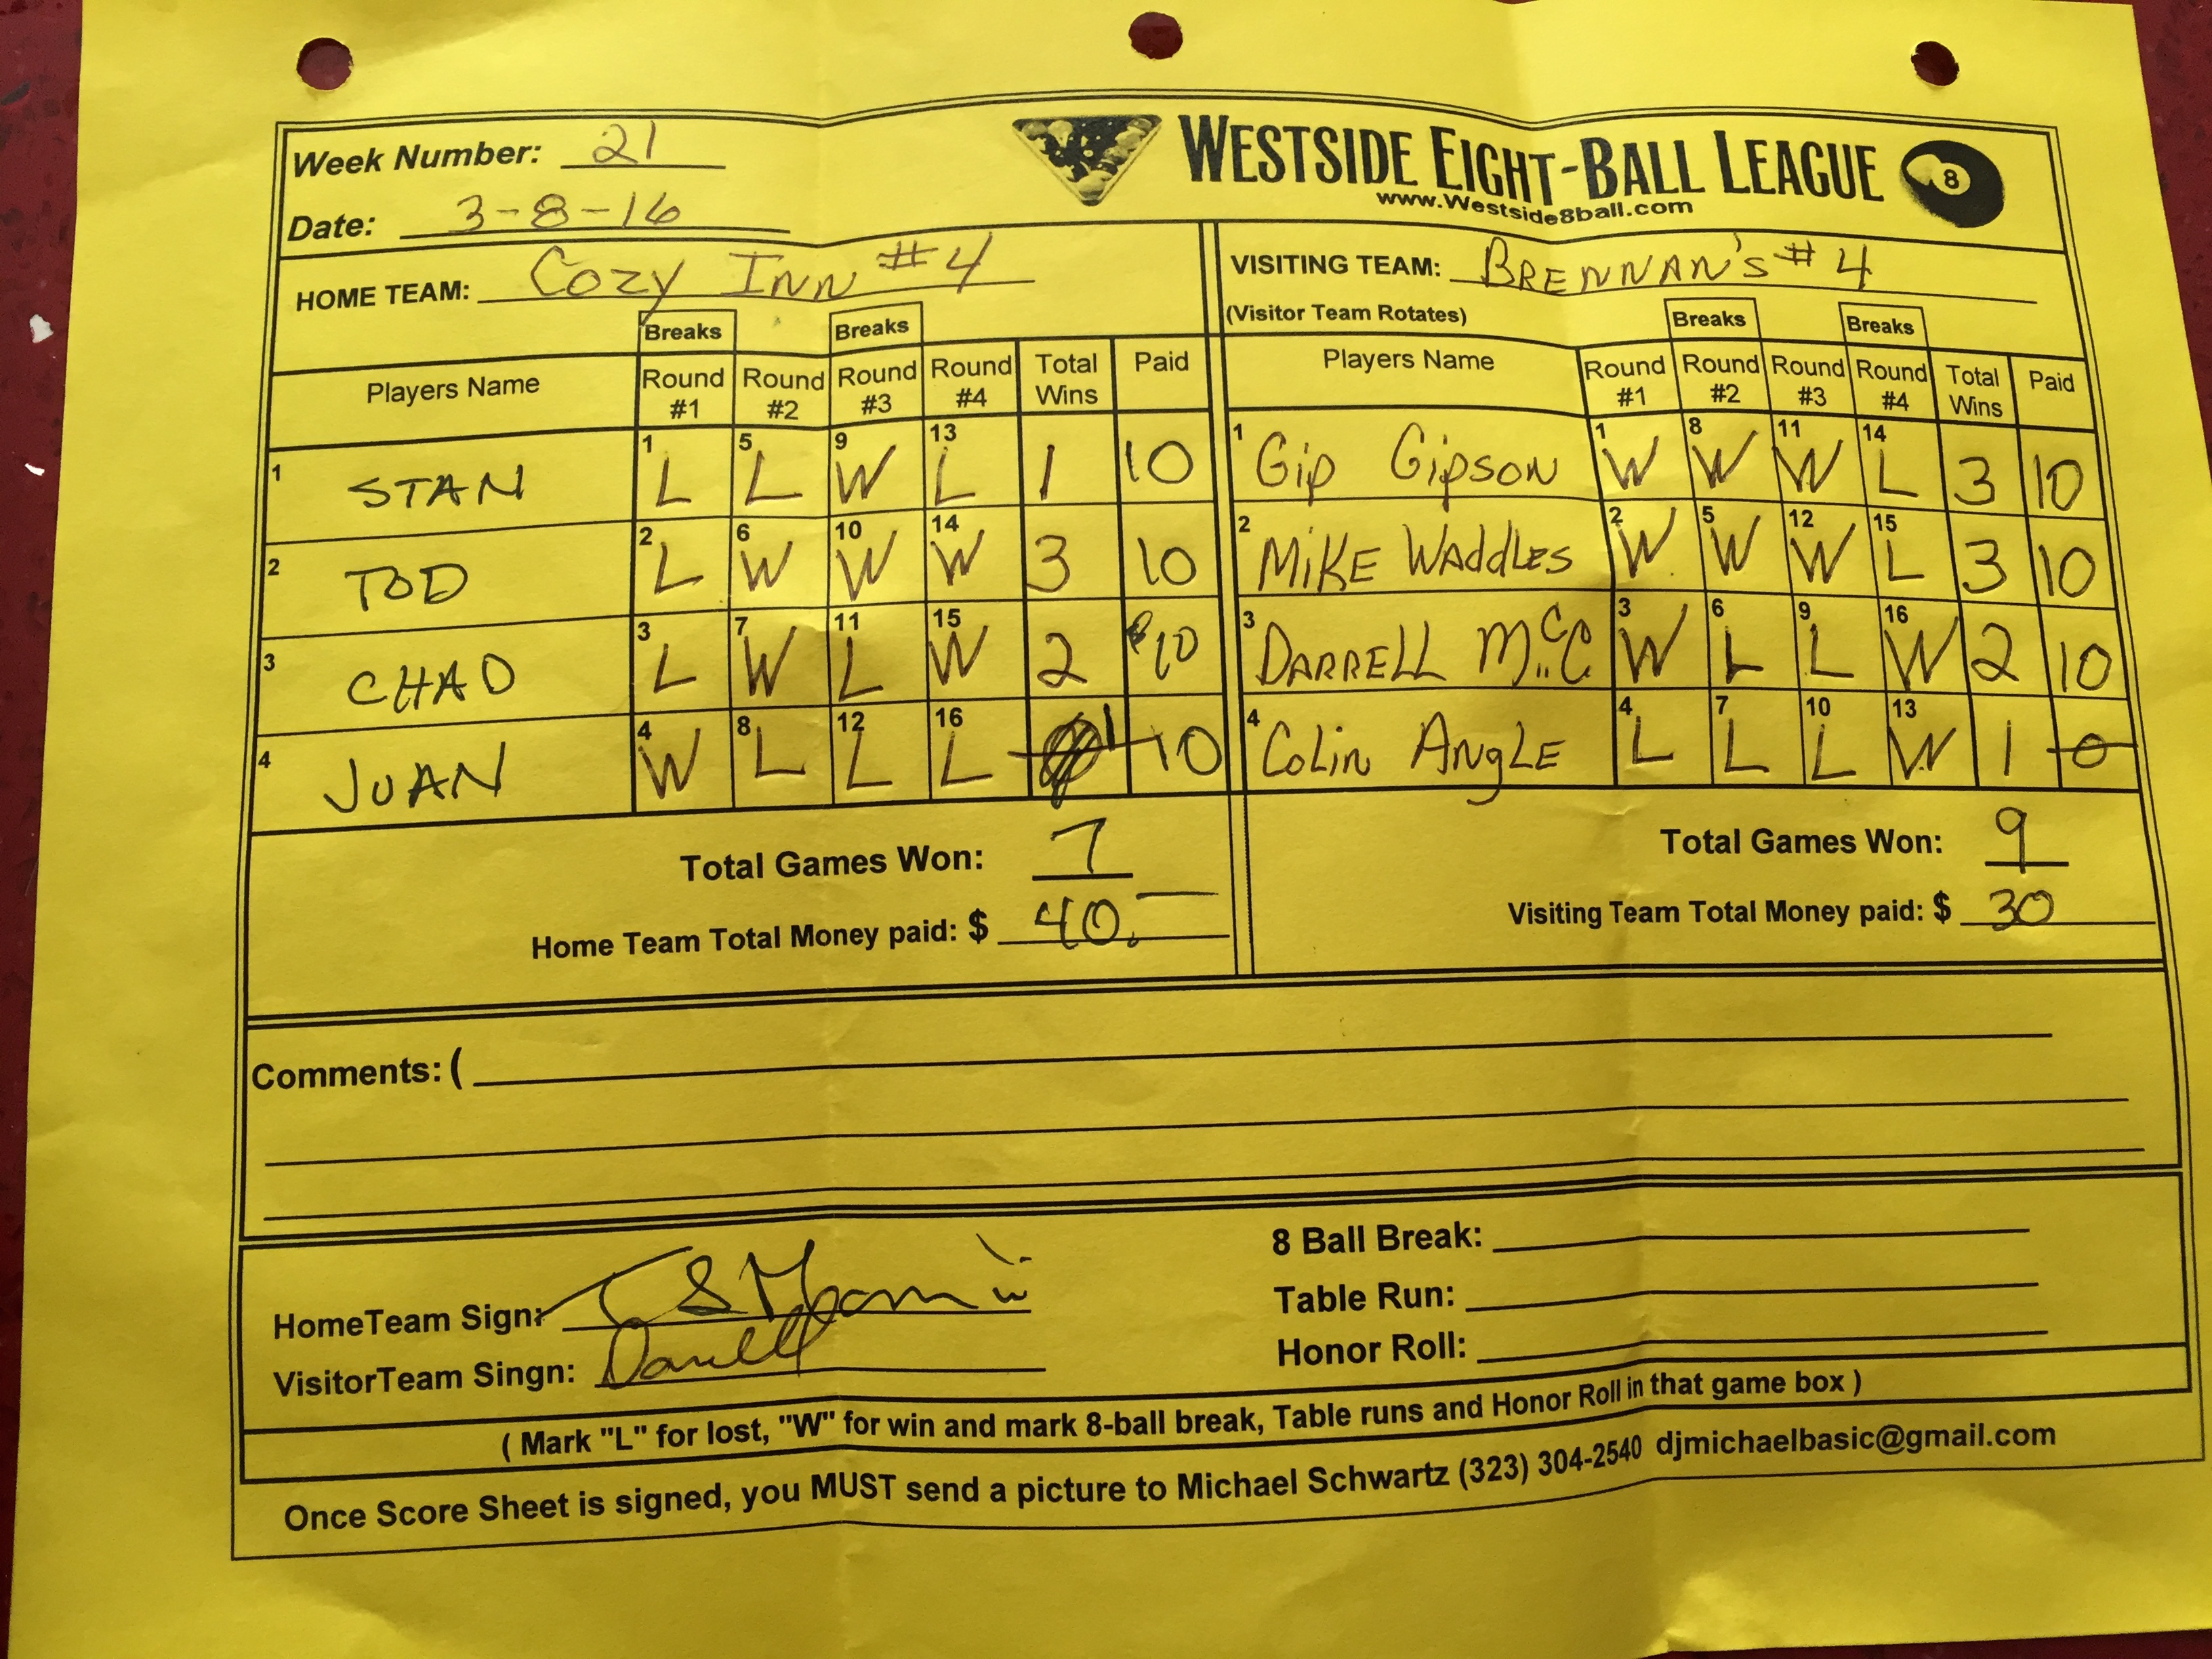 Week Number: 21
WESTSIDE EIGHT-BALL LEAGUE 8
www.Westside8ball.com
Date: 3-8-16
HOME TEAM: Cozy Inn #4
VISITING TEAM: BRENNAN'S #4
(Visitor Team Rotates)
Breaks Breaks Breaks Breaks
Players Name Round #1 Round #2 Round #3 Round #4 Total Wins Paid Players Name Round #1 Round #2 Round #3 Round #4 Total Wins Paid
1 STAN 1 L 5 L 9 W 13 L 1 10 1 Gip Gipson 1 W 8 W 11 W 14 L 3 10
2 TOD 2 L 6 W 10 W 14 W 3 10 2 MIKE WADDLES 2 W 5 W 12 W 15 L 3 10
3 CHAD 3 L 7 W 11 L 15 W 2 10 3 DARRELL 3 W 6 L 9 L 16 W 2 10
4 JUAN 4 W 8 L 12 L 16 L 1 10 4 Colin ANgLE 4 L 7 L 10 L 13 W 1 0
Total Games Won: 7
Total Games Won: 9
Home Team Total Money paid: $ 40.
Visiting Team Total Money paid: $ 30
Comments: (
8 Ball Break:
HomeTeam Sign:
Table Run:
VisitorTeam Singn: Darrell
Honor Roll:
( Mark "L" for lost, "W" for win and mark 8-ball break, Table runs and Honor Roll in that game box )
Once Score Sheet is signed, you MUST send a picture to Michael Schwartz (323) 304-2540 djmichaelbasic@gmail.com